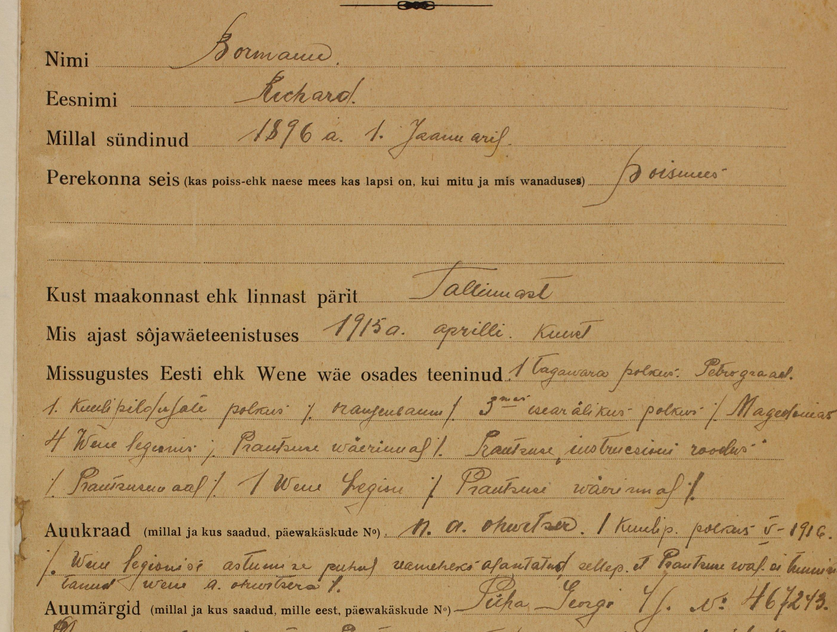 Nimi Bormann.
Eesnimi Richard.
Millal sündinud 1896 a. 1. Jaanuaril.
Perekonna seis (kas poiss-ehk naese mees kas lapsi on, kui mitu ja mis wanaduses) poismees
Kust maakonnast ehk linnast pärit Tallinnast
Mis ajast sôjawäeteenistuses 1915 a. aprilli. kuust
Missugustes Eesti ehk Wene wäe osades teeninud 1 tagawara polkus. Petrograad.
1. Kuulipildujate polkus /. Orangenbaum /. 3 polkus /. Magedonias
4 Wene legionis /. Prantsuse wäerinnal /. Prantsuse "instructsioni roodus"
/. Prantsusemaal /. 1 Wene Legion /. Prantsuse wäerinnal /.
Auukraad (millal ja kus saadud, päewakäskude No). n. a. ohwitser. 1 Kuulip. polkus V - 1916.
/. Wene legionisse astumise puhul reameheks sellep. et Prantsuse
wene a. ohwitsera /.
Auumärgid (millal ja kus saadud, mille eest, päewakäskude No) Püha Georgi No 467243.